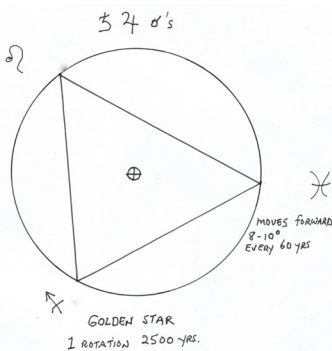 ♄ ♃ ☌'s
♌
♓
MOVES FORWARD
8-10°
EVERY 60 YRS
♐
GOLDEN STAR
1 ROTATION 2500 YRS.